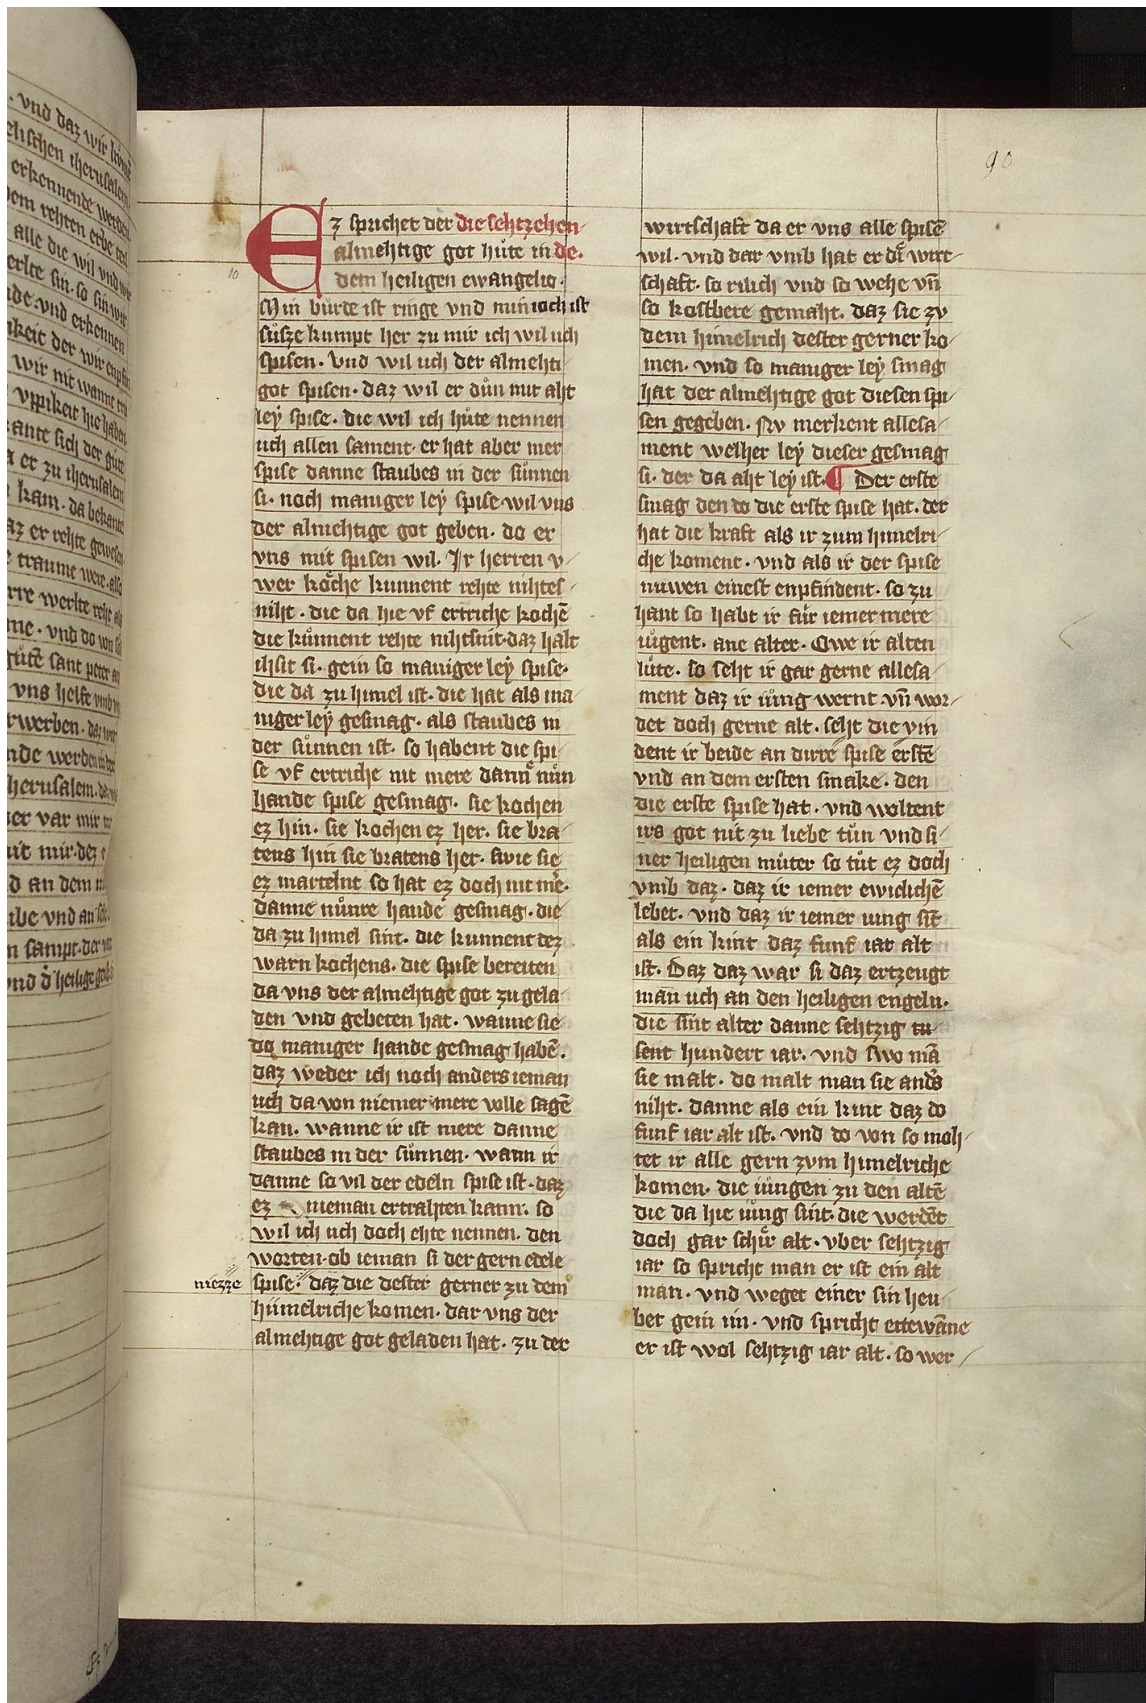 90
Ez sprichet der die sehtzehen
almehtige got hute in de.
dem heiligen ewangelio.
10
Min burde ist ringe vnd min ioch ist
süsze kumpt her zu mir ich wil uch
spisen. vnd wil uch der almehti
got spisen. daz wil er dün mit aht
ley spise. die wil ich hüte nennen
uch allen sament. er hat aber mer
spise danne staubes in der sünnen
si. noch maniger ley spise wil vns
der almehtige got geben. do er
vns mit spisen wil. Ir herren v
wer köche kunnent rehte nihtes
niht. die da hie vf ertriche kochē
die kunnent rehte nihtsnit. daz halt
ihsit si. gein so maniger ley spise.
die da zu himel ist. die hat als ma
niger ley gesmag. als staubes in
der sünnen ist. so habent die spi
se vf ertriche nit mere dann nün
hande spise gesmag. sie kochen
ez hin. sie kochen ez her. sie bra
tens hin sie bratens her. swie sie
ez martelnt so hat ez doch nit me.
danne nünre hande gesmag. die
da zu himel sint. die kunnent dez
warn kochens. die spise bereiten
da vns der almehtige got zu gela
den vnd gebeten hat. wanne sie
do maniger hande gesmag habē.
daz weder ich noch anders ieman
uch da von niemer mere volle sagē
kan. wanne ir ist mere danne
staubes in der sünnen. wann ir
danne so vil der edeln spise ist. daz
ez nieman ertrahten kann. so
wil ich uch doch ehte nennen. den
worten. ob ieman si der gern edele
niezze
spise. daz die dester gerner zu dem
himelriche komen. dar vns der
almehtige got geladen hat. zu der
wirtschaft da er vns alle spisē
wil. vnd dar vmb hat er di wirt
schaft. so rilich vnd so wehe vn̄
so kostbere gemaht. daz sie zv
dem himelrich dester gerner ko
men. vnd so maniger ley smag
hat der almehtige got diesen spi
sen gegeben. Nv merkent allesa
ment welher ley dieser gesmag
si. der da aht ley ist. ¶ Der erste
smag den do die erste spise hat. der
hat die kraft als ir zum himelri
che koment. vnd als ir der spise
nuwen einest enpfindent. so zu
hant so habt ir für iemer mere
iugent. ane alter. Owe ir alten
lüte. so seht ir gar gerne allesa
ment daz ir iüng wernt. vn̄ wor
det doch gerne alt. seht die vin
dent ir beide an dirre spise erstē
vnd an dem ersten smake. den
die erste spise hat. vnd woltent
irs got nit zu liebe tün vnd si
ner heiligen müter so tüt ez doch
vmb daz. daz ir iemer ewiclichē
lebet. vnd daz ir iemer iung sit
als ein kint daz funf iar alt
ist. Daz daz war si daz ertzeugt
man uch an den heiligen engeln.
die sint alter danne sehtzig tu
sent hundert iar. vnd swo mā
sie malt. do malt man sie anders
niht. danne als ein kint daz do
funf iar alt ist. vnd do von so moh
tet ir alle gern zvm himelriche
komen. die iüngen zu den altē
die da hie iüng sint. die werdēt
doch gar schir alt. vber sehtzig
iar so spricht man er ist ein alt
man. vnd weget einer sin heu
bet gein im. vnd spricht ettewāne
er ist wol sehtzig iar alt. so wer